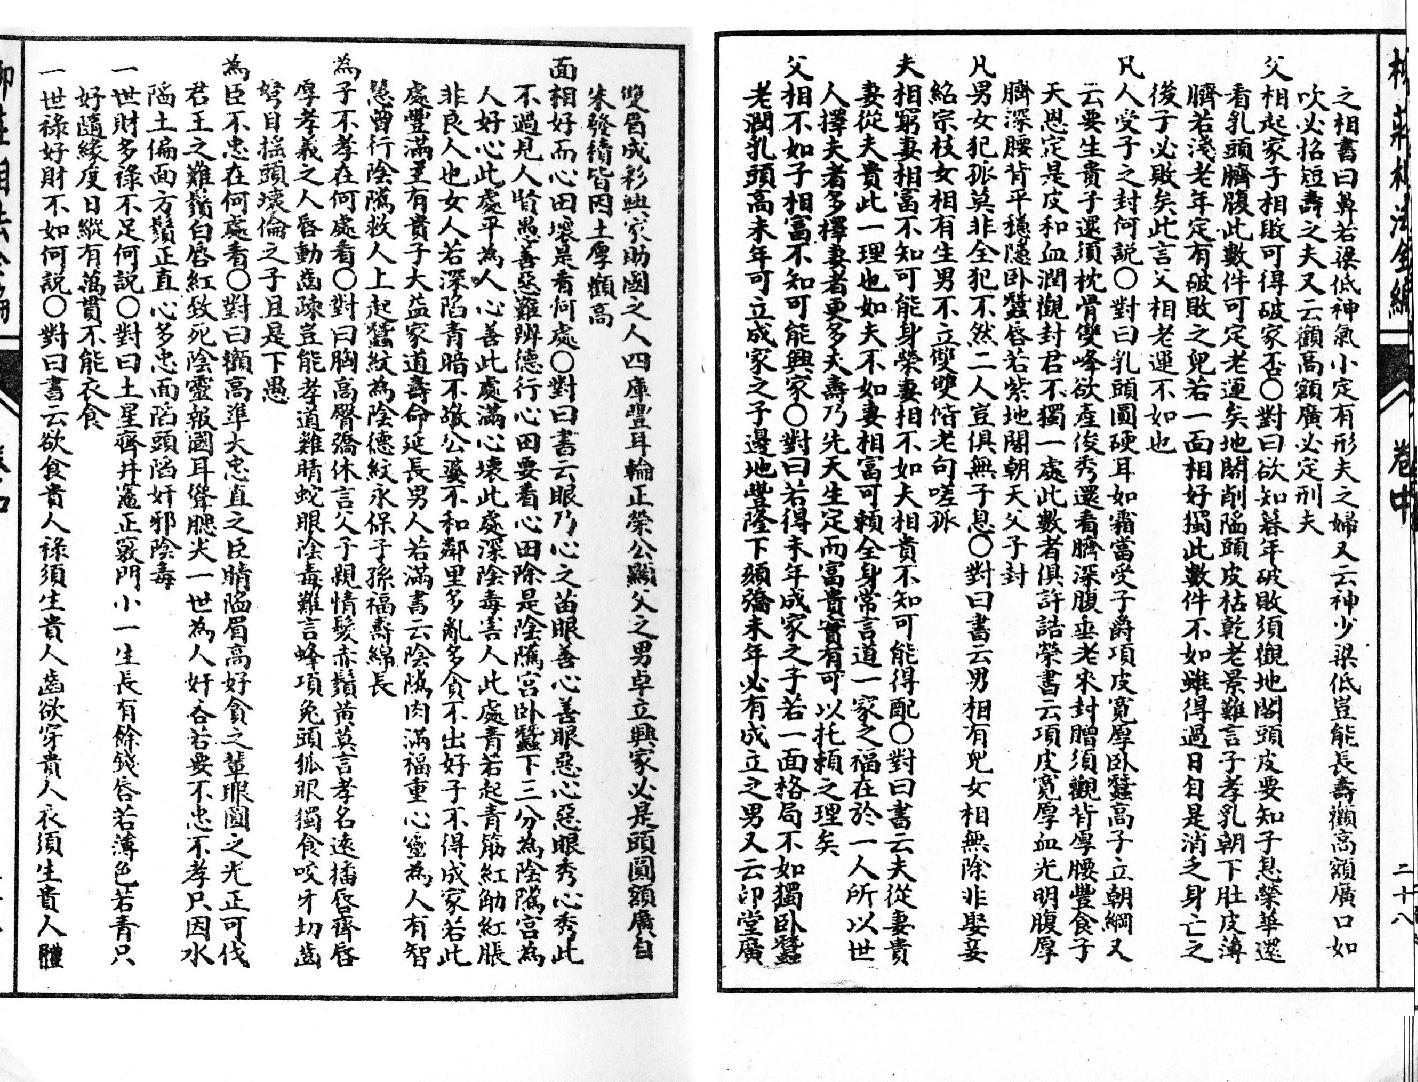 柳莊相法全編 卷中 二十八
之相書曰鼻若梁低神氣小定有形夫之婦又云神少梁低豈能長壽顴高額廣口如
吹火必招短壽之夫又云顴高額廣必定刑夫
父相起家子相敗可得破家否〇對曰欲知暮年破敗須觀地閣頭皮要知子息榮華還
看乳頭臍腹此數件可定老運矣地閣削陷頭皮枯乾老景難言子孝乳朝下肚皮薄
臍若淺老年定有破敗之兒若一面相好獨此數件不如雖得過日自是消乏之身亡之
後子必敗矣此言父相老運不如也
凡人受子之封何說〇對曰乳頭圓硬耳如霜當受子爵項皮寬厚臥蠶高子立朝綱又
云要生貴子還須枕骨雙峰欲產俊秀還看臍深腹垂老來封贈須觀背厚腰豐食子
天恩定是皮和血潤觀封君不獨一處此數者俱許誥榮書云項皮寬厚血光明腹厚
臍深腰背平穩隱臥蠶唇若紫地閣朝天父子封
凡男女犯孤莫非全犯不然二人豈俱無子息〇對曰書云男相有兒女相無除非娶妾
紹宗枝女相有生男不立雙雙偕老句嗟孤
夫相窮妻相富不知可能身榮妻相不如夫相貴不知可能得配〇對曰書云夫從妻貴
妻從夫貴此一理也如夫不如妻相富可賴全身常言道一家之福在於一人所以世
人擇夫者多擇妻者更多夫壽乃先天生定而富貴實有可以托賴之理矣
父相不如子相富不知可能興家〇對曰若得末年成家之子若一面格局不如獨臥蠶
老潤乳頭高末年可立成家之子邊地豐隆下頦癟末年必有成立之男又云印堂廣
雙眉成彩興家助國之人四庫豐耳輪正榮公顯父之男卓立興家必是頭圓額廣白
朱發積皆因土厚顴高
面相好而心田壞果看何處〇對曰書云眼乃心之苗眼善心善眼惡心惡眼秀心秀此
不過見人賢愚善惡難辨德行心田要看心田除是陰隲宮臥蠶下三分為陰隲宮為
人好心此處平為人心善此處滿心壞此處深陰毒害人此處青若起青筋紅筋紅脹
非良人也女人若深陷青暗不敬公婆不和鄰里多亂多貪不出好子不得成家若此
處豐滿主有貴子大益家道壽命延長男人若滿書云陰隲肉滿福重心靈為人有智
慧曾行陰隲救人上起蠶紋為陰德紋永保子孫福壽綿長
為子不孝在何處看〇對曰胸高臀蹺休言父子親情髮赤鬚黃莫言孝名遠播唇齊唇
厚孝義之人唇動齒疎豈能孝道雞睛蛇眼陰毒難言蜂項兔頭狐眼獨食咬牙切齒
弩目搖頭壞倫之子且是下愚
為臣不忠在何處看〇對曰顴高準大忠直之臣睛陷眉高好貪之輩眼圓之光正可伐
君王之難鬚白唇紅致死陰靈報國耳聳腮尖一世為人奸吝若要不忠不孝只因水
陷土偏面方鬚正直心多忠面陷頭陷奸邪陰毒
一世財多祿不足何說〇對曰土星齊井竈正竅門小一生長有餘錢唇若薄色若青只
好隨緣度日縱有萬貫不能衣食
一世祿好財不如何說〇對曰書云欲食貴人祿須生貴人齒欲穿貴人衣須生貴人體